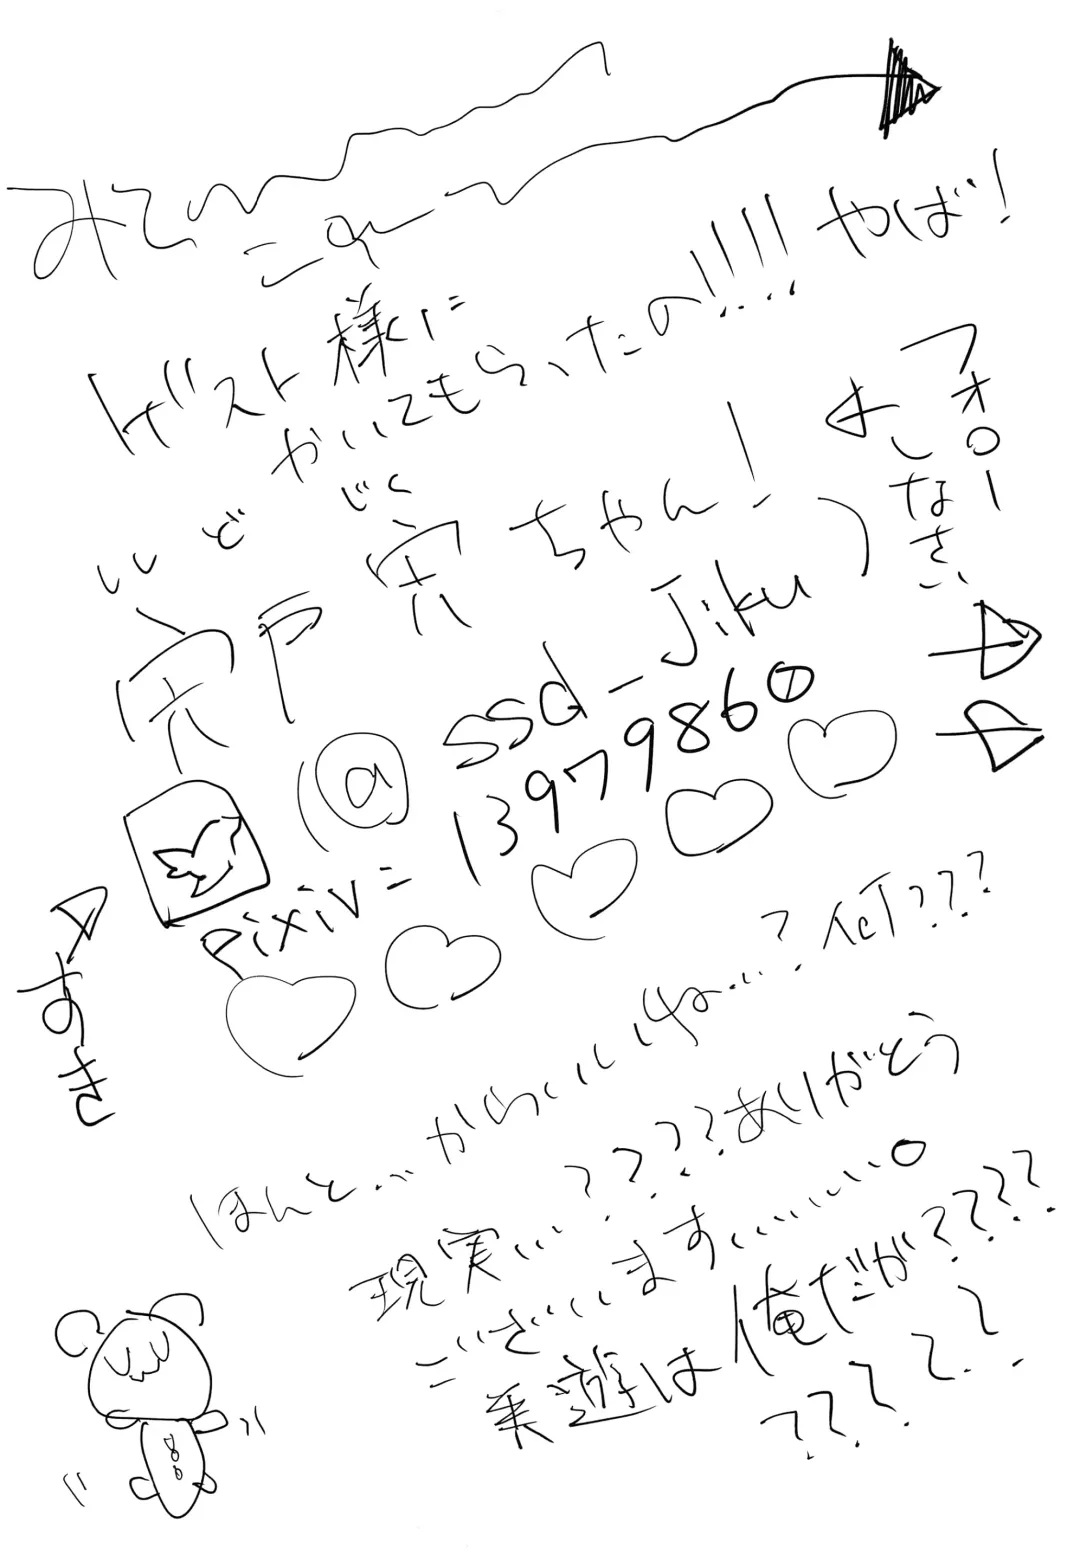 みて
これ
ゲスト様に
かいてもらったの!!!! やば!
フォロー
しなさい
ししど じく
宍戸 宍ちゃん!
(@ssd_Jiku)
pixiv=13979860
ほんと…からいいね…? 何???
現実…????ありがとう
ございます……。
美遊は俺だが????
?????